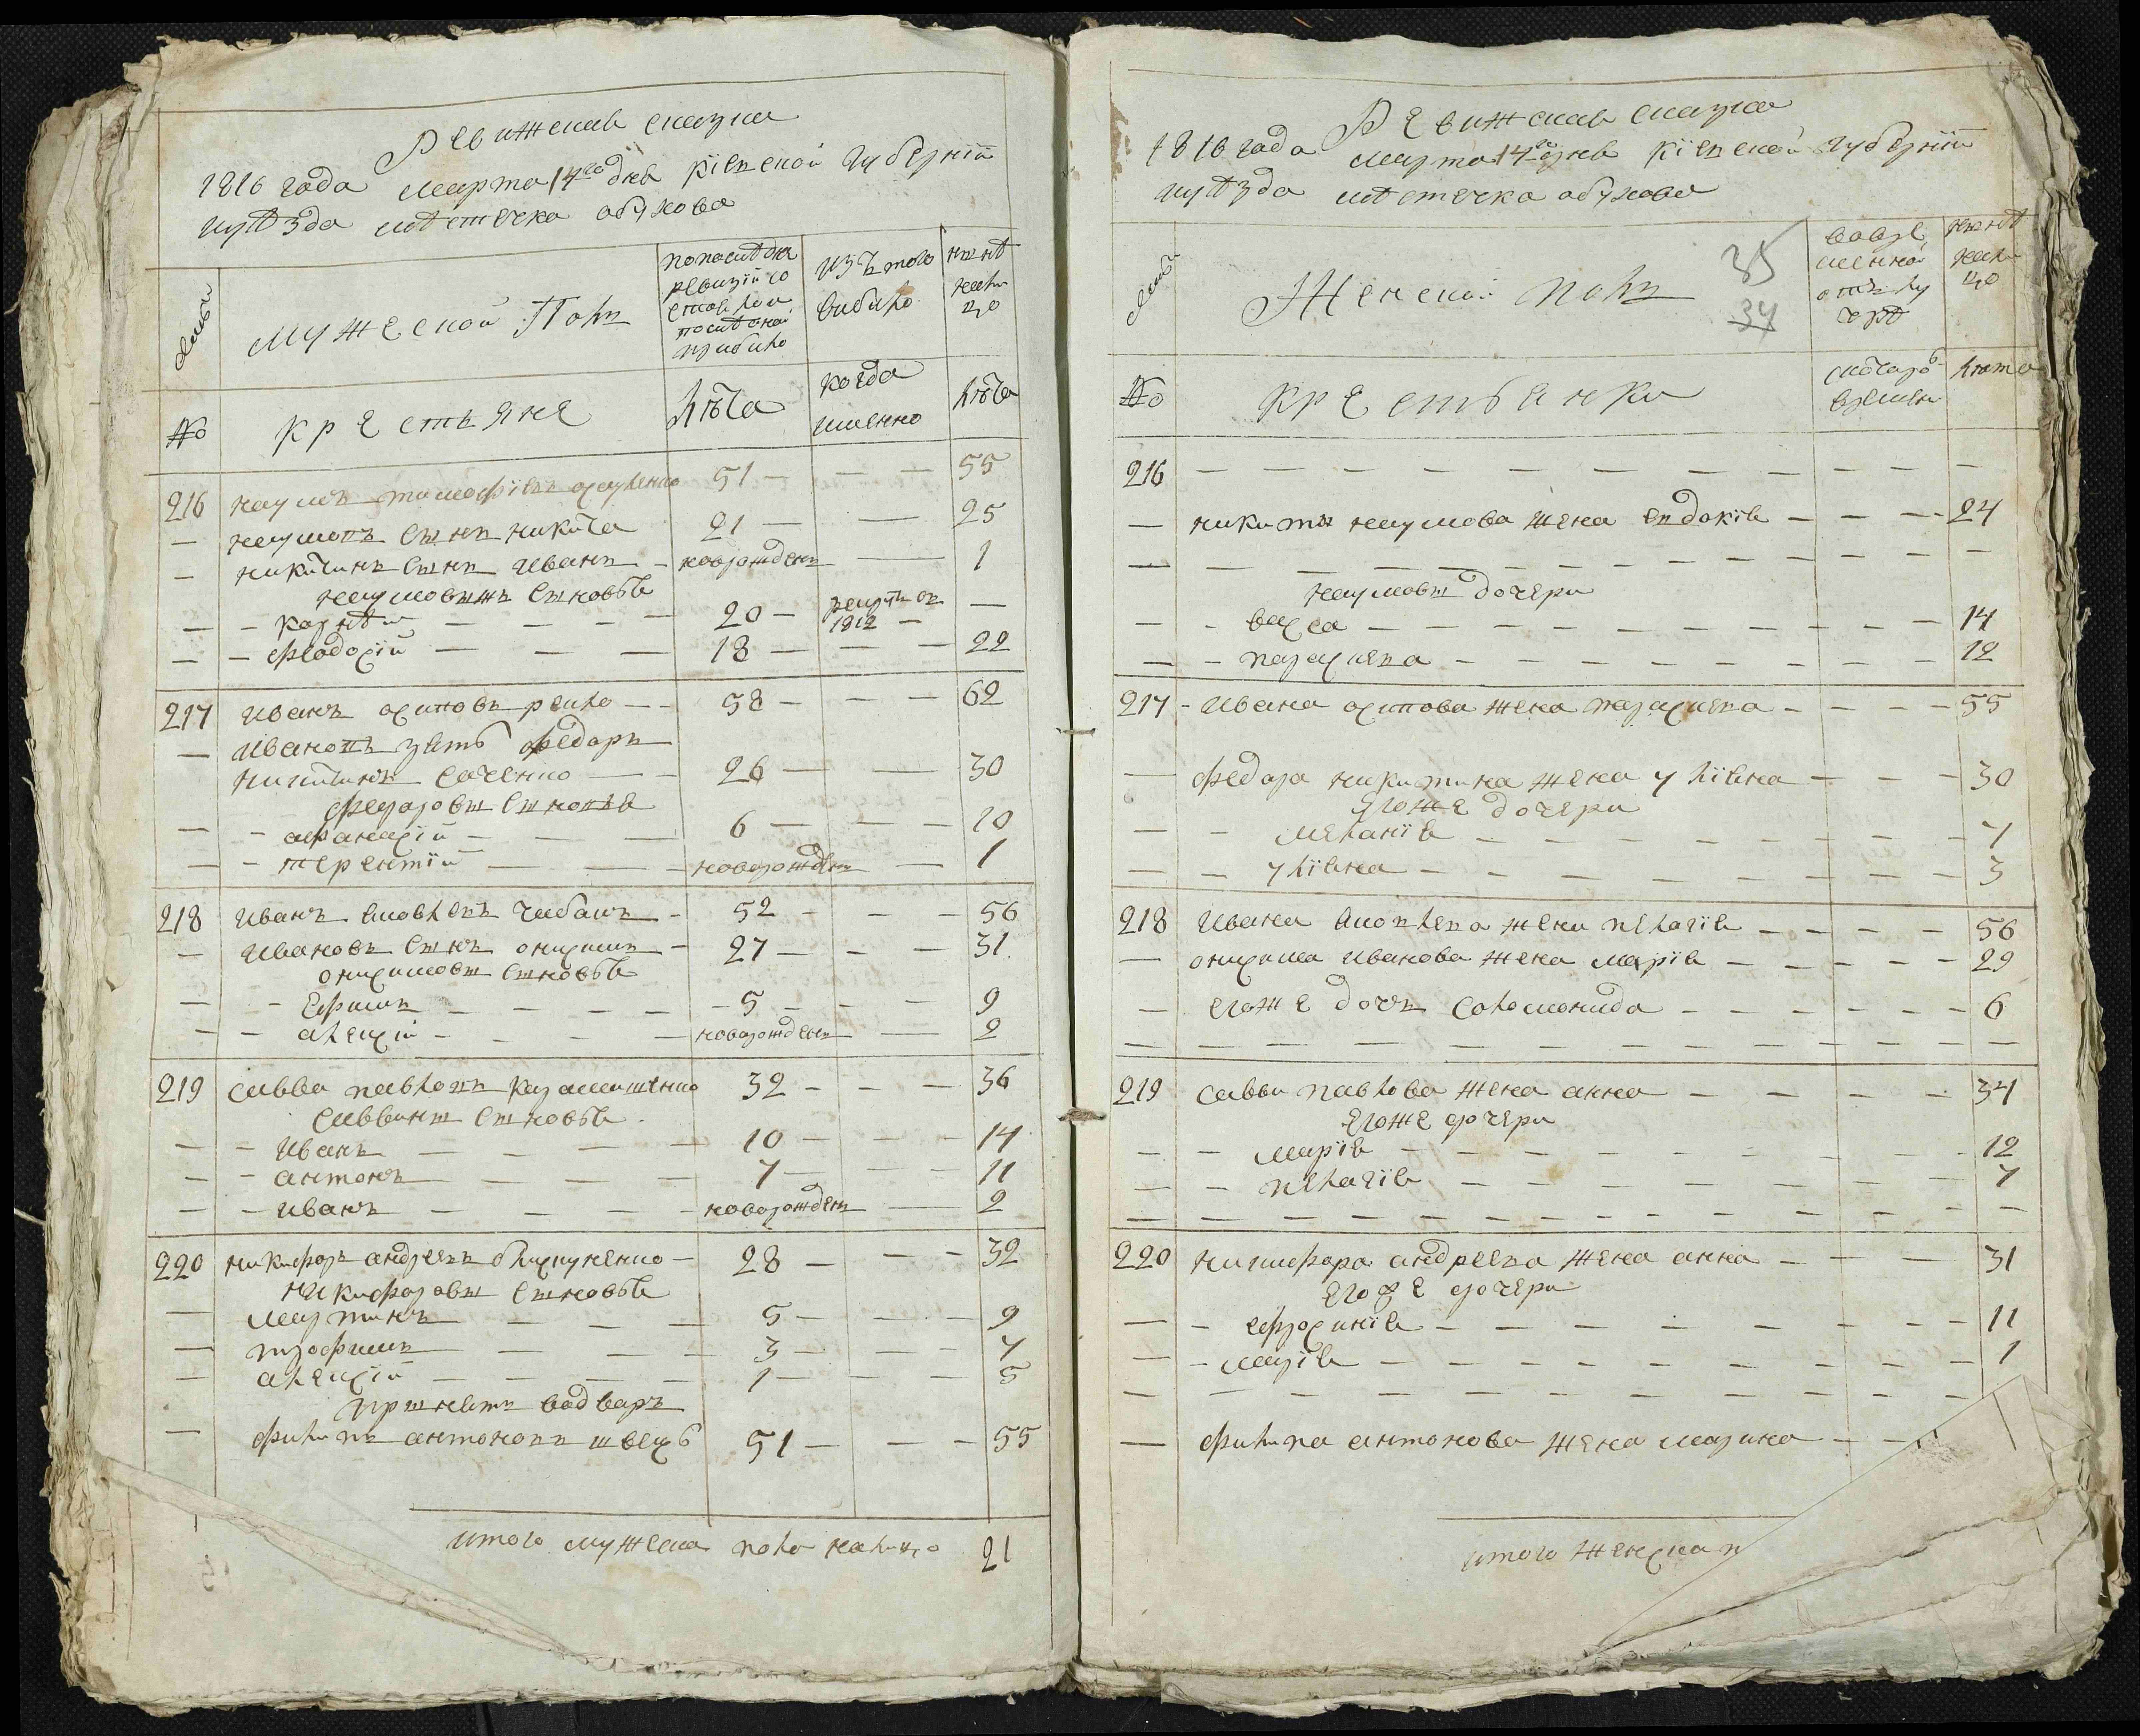 Ревижская сказка
1816 года марта 14го дня кіевской губерніи
иуѣзда мѣстечка обухова
Семьи
Мужеской Полъ
попослѣдней
ревизіи со
стояло и
послѣ оной
прибыло
изъ того
выбыло
нынѣ
нали
цо
№
крестьяне
лѣта
когда
именно
лѣта
216 наумъ тимофѣевъ 51 — — — 55
— наумовъ сынъ никита 21 — — 25
— никитинъ сынъ иванъ — новорожденъ — 1
наумовыжъ сыновья
— — корнѣй — — — — 20 — рекрутъ въ 1812 — —
— — феодосій — — — 18 — — — 22
217 иванъ осиповъ — — 58 — — — 62
— ивановъ зять федоръ
никитинъ саченко — — 26 — — 30
федоровы сыновья
— — афанасій — — — 6 — — — 10
— — терентій — — — новорожденъ — 1
218 иванъ яковлевъ чабанъ — 52 — — — 56
— ивановъ сынъ онисимъ — 27 — — — 31
онисимовы сыновья
— — ефимъ — — — — — 5 — — — 9
— — алексій — — — — новорожденъ — 2
219 савва павловъ 32 — — — 36
саввины сыновья
— — иванъ — — — — 10 — — — 14
— — антонъ — — — — 7 — — — 11
— — иванъ — — — — новорожденъ — 2
220 никифоръ андреевъ — 28 — — — 32
никифоровы сыновья
— мартинъ — — — — 5 — — — 9
— трофимъ — — — — 3 — — — 7
— алексій — — — — 1 — — — 5
принятъ водворъ
— филипъ антоновъ швецъ 51 — — — 55
итого мужеска пола налицо 21
Ревижская сказка
1816 года марта 14го дня кіевской губерніи
иуѣзда мѣстечка обухова
35
34
Семьи
Женской полъ
вовре
менной
отлу
чкѣ
нынѣ
нали
цо
№
крестьянки
скотораго
времени
лѣта
216 — — — — — — — — — — — —
— никиты наумова жена евдокія — — — 24
— — — — — — — — — — — —
наумовы дочери
— — васса — — — — — — — — — 14
— — параскева — — — — — — — — 12
217 — ивана осипова жена параскева — — — — 55
— федора никитина жена уліяна — — — 30
егоже дочери
— — меланія — — — — — — — — 7
— — уліяна — — — — — — — — — 3
218 ивана яковлева жена пелагія — — — — — 56
— онисима иванова жена марія — — — — — 29
— егоже дочь соломонида — — — — — — 6
— — — — — — — — — — — —
219 саввы павлова жена анна — — — — — 34
егоже дочери
— — марія — — — — — — — — 12
— — пелагія — — — — — — — — 7
— — — — — — — — — — — —
220 никифора андреева жена анна — — — — 31
егоже дочери
— — ефросинія — — — — — — — — 11
— — марія — — — — — — — — — 1
— — — — — — — — — — — —
— филипа антонова жена марина — —
итого женска п